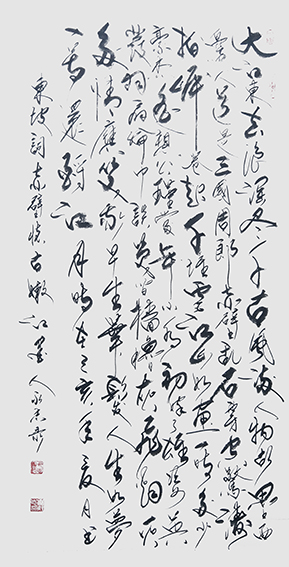 大江東去浪淘盡千古風流人物故壘西
邊人道是三國周郎赤壁亂石穿空驚濤
拍岸卷起千堆雪江山如畫一時多少
豪杰遙想公瑾當年小喬初嫁了雄姿英
發羽扇綸巾談笑間檣櫓灰飛烟
多情應笑我早生華髮人生如夢
一尊還酹江月時在己亥年夏月書
東坡詞赤壁懷古